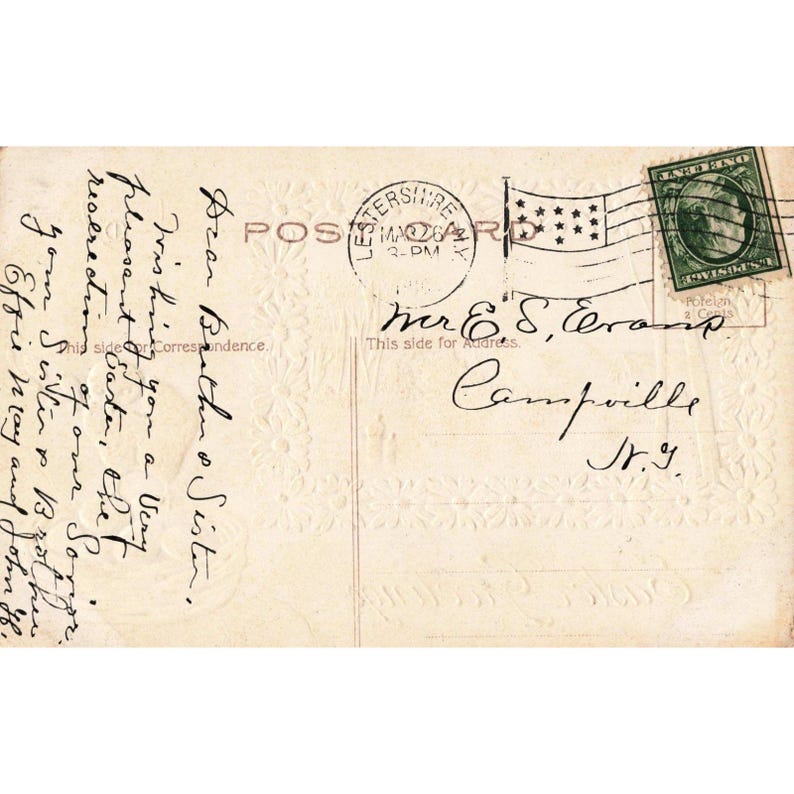 POST CARD
LESTERSHIRE N.Y.
MAR 26
3-PM
ONE CENT
U.S. POSTAGE
Foreign
2 Cents
This side for Correspondence.
This side for Address.
Dear Brother & Sister,
Wishing you a Very
pleasant Easter, & the
reserection of our Savior.
your Sister & Brother
Effie May and John H.
Mr E, S, Evans.
Campville
N.Y.
Easter Greetings